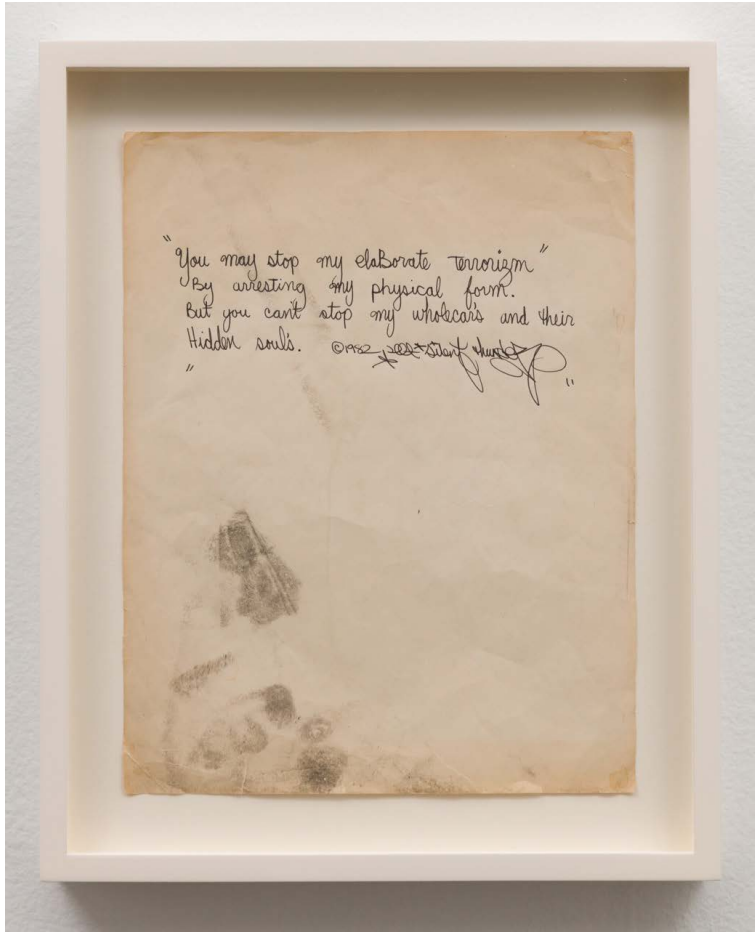 "You may stop my elaBorate terrorizm"
By arresting my physical form.
But you can't stop my wholecar's and their
Hidden soul's. ©1982
" "